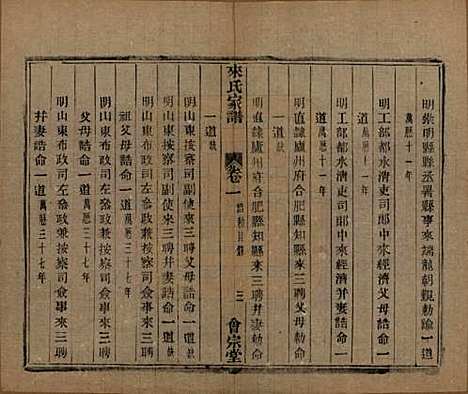 明崇明縣縣丞署縣事來端龍朝覲勅諭一道
萬曆十一年
明工部都水清吏司郎中來經濟父母誥命一道
明工部都水清吏司郎中來經濟并妻誥命一道
萬曆十一年
明直隸廬州府合肥縣知縣來三聘父母勅命
一道
明直隸廬州府合肥縣知縣來三聘并妻勅命
一道
來氏家譜
卷一
三
會宗堂
明山東按察司副使來三聘并妻誥命一道
明山東布政司左叅政兼按察司僉事來三聘
祖父母誥命一道
萬曆三十七年
明山東布政司左叅政兼按察司僉事來三聘
父母誥命一道
萬曆三十七年
明山東布政司左叅政兼按察司僉事來三聘
并妻誥命一道
萬曆三十七年